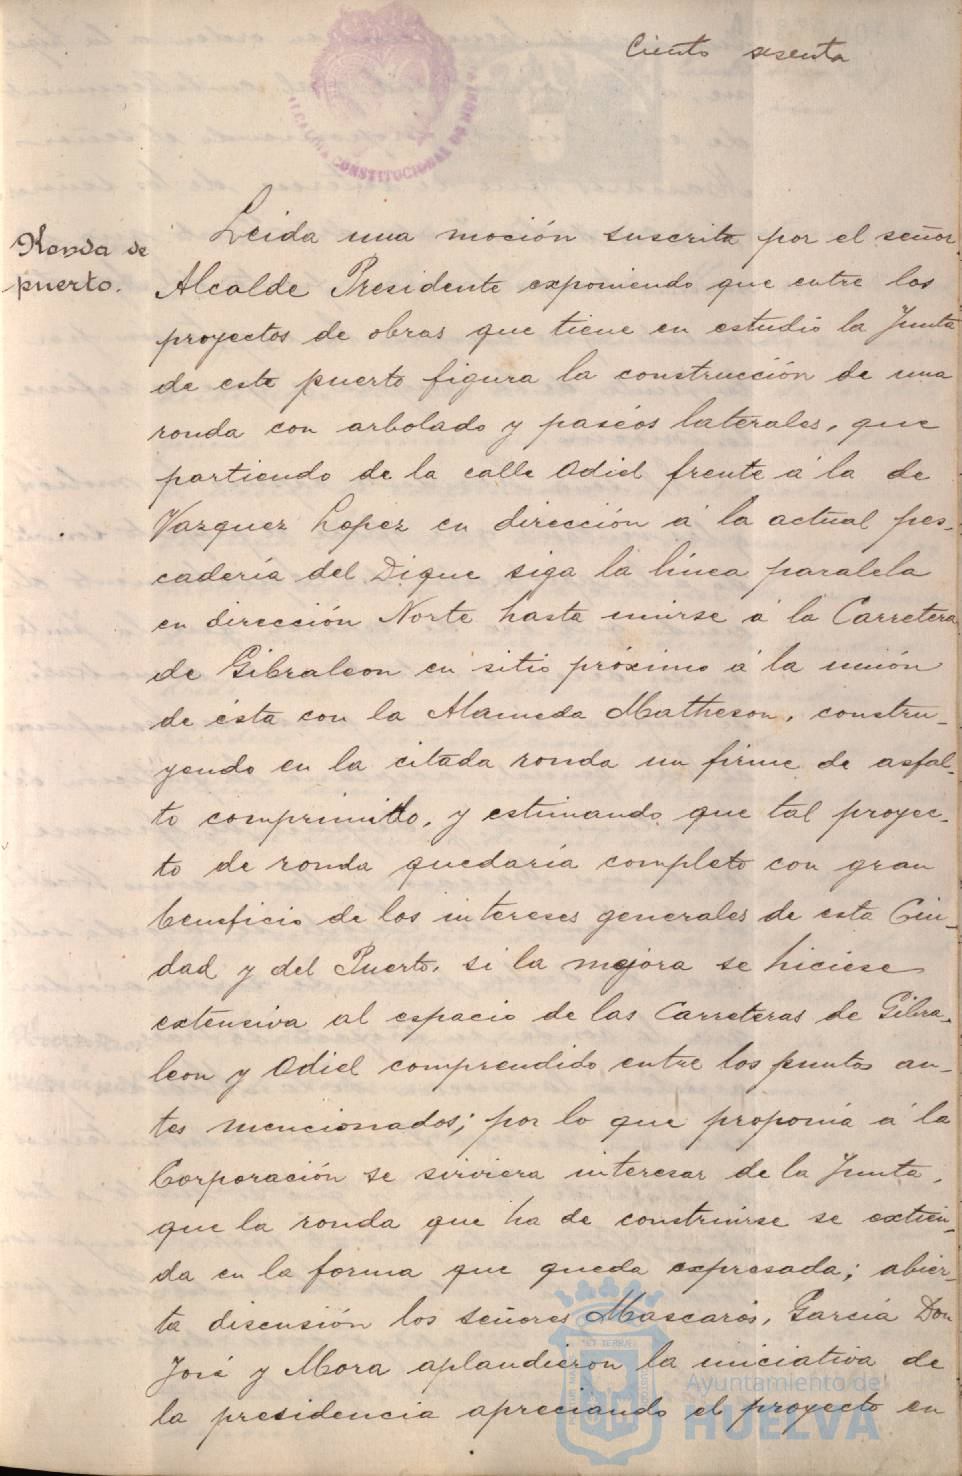 Ciento sesenta
ALCALDIA CONSTITUCIONAL DE HUELVA
Ronda de
puerto.
Leida una moción suscrita por el señor
Alcalde Presidente exponiendo que entre los
proyectos de obras que tiene en estudio la Junta
de este puerto figura la construcción de una
ronda con arbolado y paséos laterales, que
partiendo de la calle Odiel frente á la de
Vazquez Lopez en dirección á la actual pes-
cadería del Dique siga la línea paralela
en dirección Norte hasta unirse á la Carretera
de Gibraleon en sitio próximo á la unión
de ésta con la Alameda Matheson, constru-
yendo en la citada ronda un firme de asfal-
to comprimido, y estimando que tal proyec-
to de ronda quedaría completo con gran
beneficio de los intereses generales de esta Ciu-
dad y del Puerto, si la mejora se hiciese
extensiva al espacio de las Carreteras de Gibra-
leon y Odiel comprendido entre los puntos an-
tes mencionados; por lo que proponía á la
Corporación se sirviera interesar de la Junta,
que la ronda que ha de construirse se extien-
da en la forma que queda expresada; abier-
ta discusión los señores Mascarós, García Don
José y Mora aplaudieron la iniciativa de
la presidencia apreciando el proyecto en
Ayuntamiento de
HUELVA